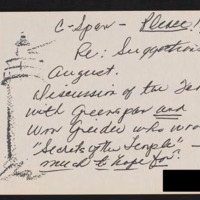 C-Span - Please!
Re: Suggestions
August.
Discussion of the Fed
with Greenspan and
Wm Greider who wrote
"Secrets of the Temple" -
much to hope for?